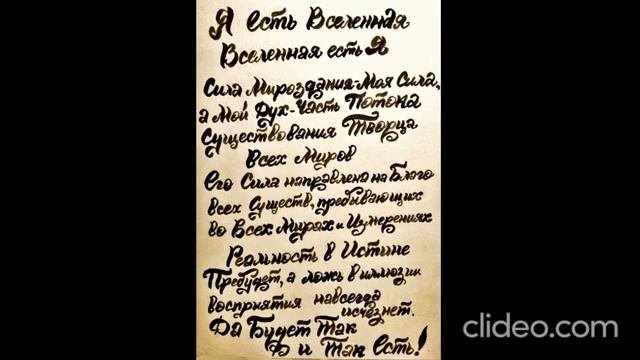 Я есть Вселенная
Вселенная есть Я
Сила Мироздания-Моя Сила,
а Мой Дух-Часть Потока
Существования Творца
Всех Миров
Его Сила направлена на Благо
всех Существ, пребывающих
во Всех Мирах и Измерениях
Реальность в Истине
Пребудет, а ложь в иллюзии
восприятия навсегда
исчезнет.
Да Будет Так
и Так Есть!
clideo.com